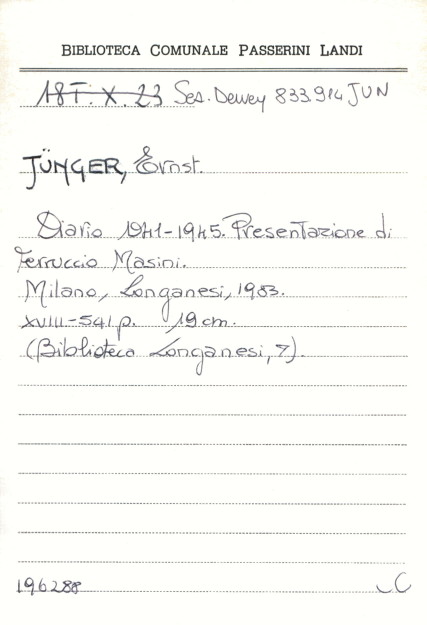 BIBLIOTECA COMUNALE PASSERINI LANDI
18T. X. 23 Ses. Dewey 833.914 JUN
JÜNGER, Ernst.
Diario 1941-1945. Presentazione di
Ferruccio Masini.
Milano, Longanesi, 1983.
XVIII-541 p. 19 cm.
(Biblioteca Longanesi, 7).
196288